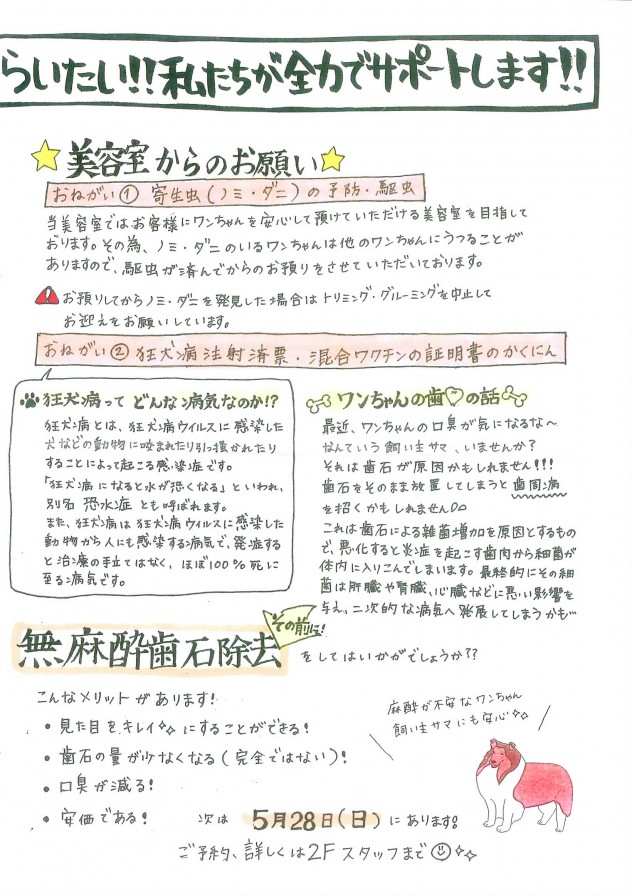 らいたい!!私たちが全力でサポートします!!
美容室からのお願い
おねがい① 寄生虫(ノミ・ダニ)の予防・駆虫
当美容室ではお客様にワンちゃんを安心して預けていただける美容室を目指して
おります。その為、ノミ・ダニのいるワンちゃんは他のワンちゃんにうつることが
ありますので、駆虫が済んでからのお預りをさせていただいております。
お預りしてからノミ・ダニを発見した場合はトリミング・グルーミングを中止して
お迎えをお願いしています。
おねがい② 狂犬病注射済票・混合ワクチンの証明書のかくにん
狂犬病って どんな病気なのか!?
狂犬病とは、狂犬病ウイルスに感染した
犬などの動物に咬まれたり引っ掻かれたり
することによって起こる感染症です。
「狂犬病になると水が恐くなる」といわれ、
別名 恐水症 とも呼ばれます。
また、狂犬病は狂犬病ウイルスに感染した
動物から人にも感染する病気で、発症する
と治療の手立てはなく、ほぼ100%死に
至る病気です。
ワンちゃんの歯♡の話
最近、ワンちゃんの口臭が気になるな〜
なんていう飼い主サマ、いませんか?
それは歯石が原因かもしれません!!!
歯石をそのまま放置してしまうと歯周病
を招くかもしれません
これは歯石による雑菌増加を原因とするもの
で、悪化すると炎症を起こす歯肉から細菌が
体内に入りこんでしまいます。最終的にその細
菌は肝臓や腎臓、心臓などに悪い影響を
与え、二次的な病気へ発展してしまうかも…
その前に!
無麻酔歯石除去
をしてはいかがでしょうか??
こんなメリットがあります!
• 見た目をキレイにすることができる!
• 歯石の量が少なくなる(完全ではない)!
• 口臭が減る!
• 安価である!
麻酔が不安なワンちゃん
飼い主サマにも安心
次は 5月28日(日)にあります!
ご予約、詳しくは2Fスタッフまで